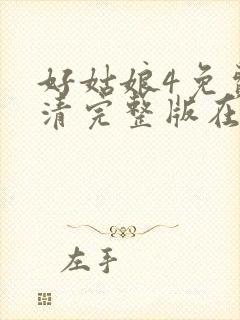 好姑娘4免费
清完整版在
左手